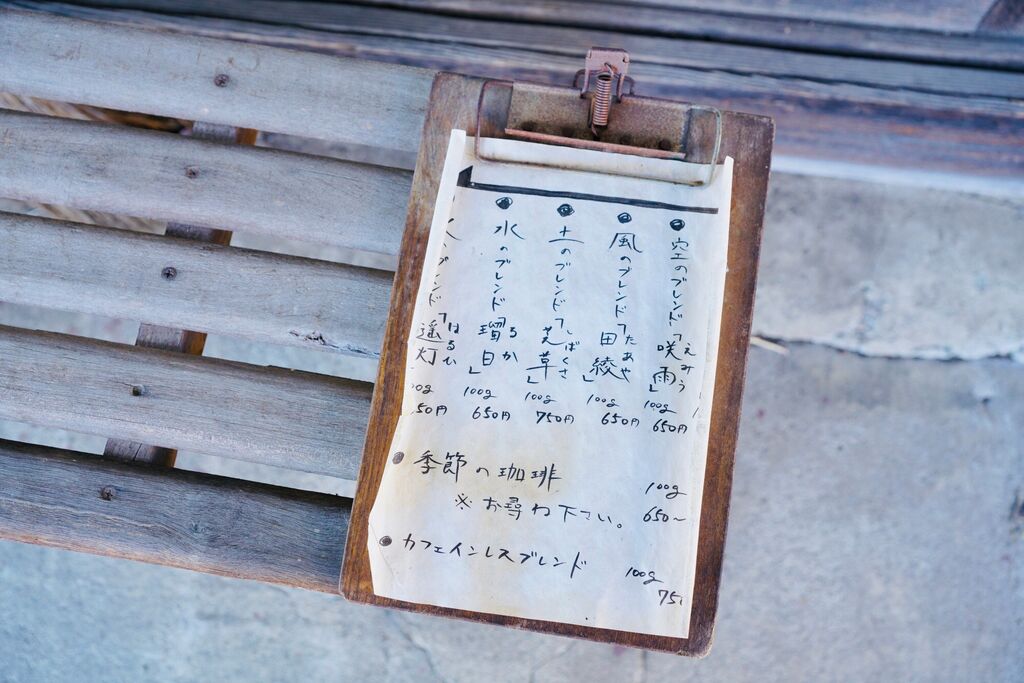 ● 空のブレンド「咲雨」
えみう
100g
650円
● 風のブレンド「田綾」
たあや
100g
650円
● 土のブレンド「芝草」
しばくさ
100g
750円
● 水のブレンド「瑠日」
るか
100g
650円
ブレンド「遥灯
はるひ
00g
50円
● 季節の珈琲 100g
※お尋ね下さい。 650〜
● カフェインレスブレンド 100g
75